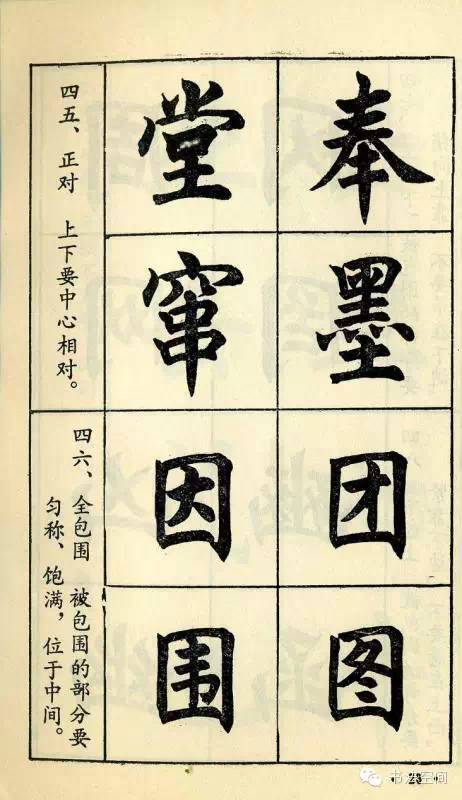 奉墨
堂窜
四五、正对 上下要中心相对。
团图
因围
四六、全包围 被包围的部分要
匀称、饱满，位于中间。
书法空间